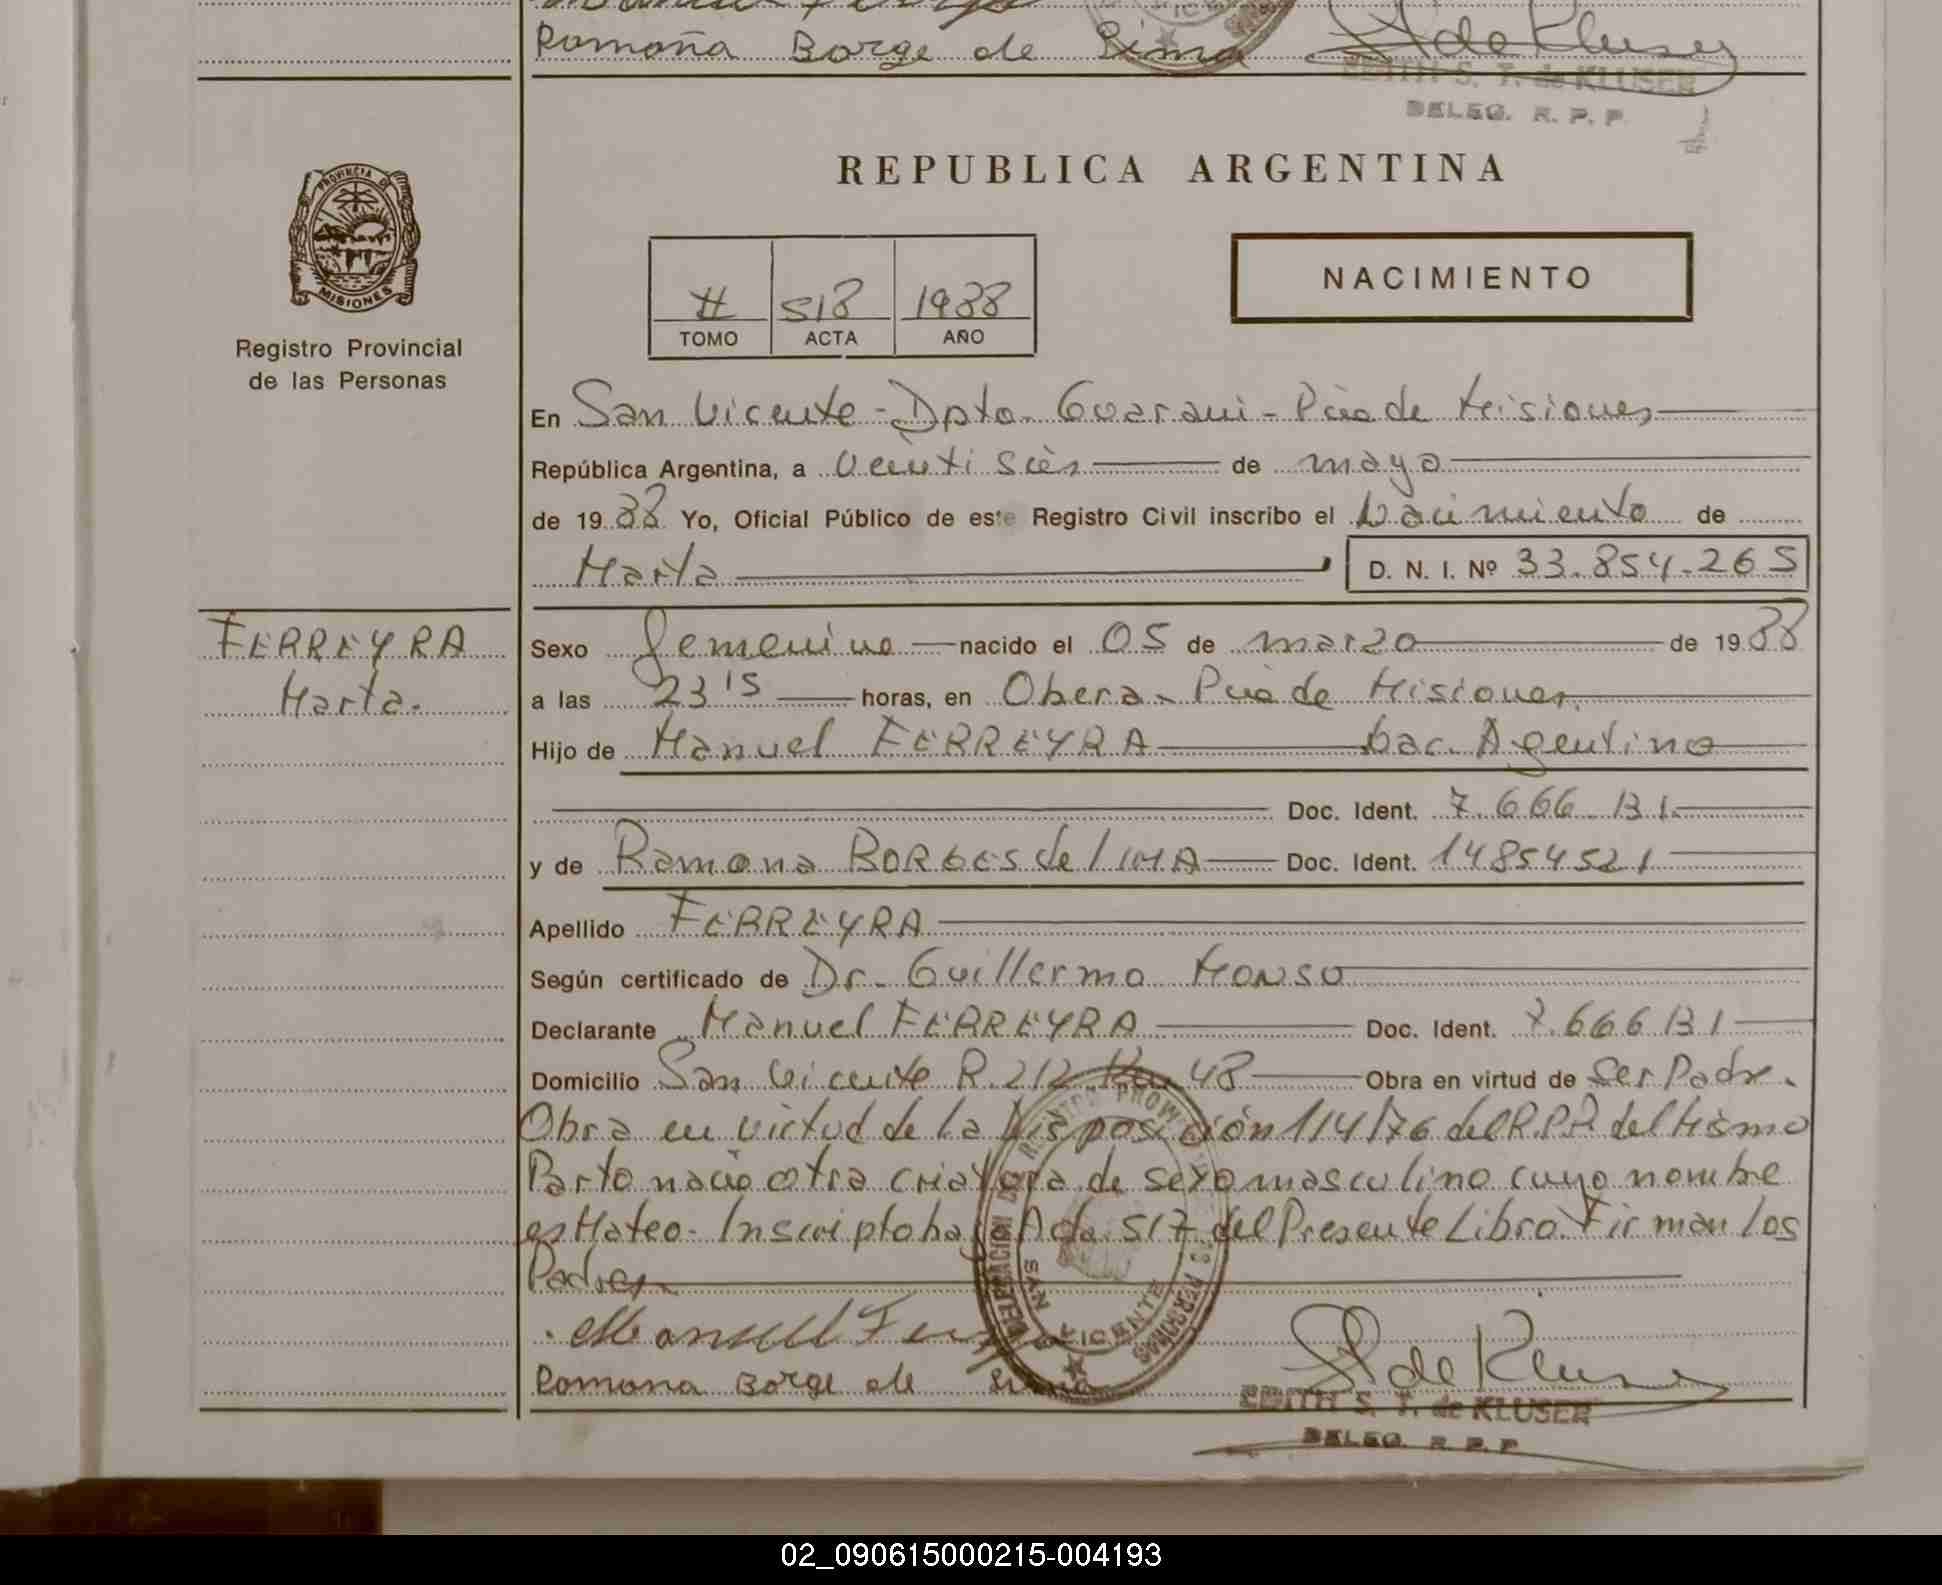 Ramona Borge de Lima
EDITH S. T. de KLUSER
DELEG. R. P. P.
PROVINCIA DE
MISIONES
Registro Provincial
de las Personas
REPUBLICA ARGENTINA
NACIMIENTO
II 518 1988
TOMO ACTA AÑO
En San Vicente - Dpto. Guarani - Pcia de Misiones
República Argentina, a Veinti Seis de mayo
de 1988 Yo, Oficial Público de este Registro Civil inscribo el Nacimiento de
Marta D. N. I. Nº 33.854.265
FERREYRA
Marta.
Sexo femenino nacido el 05 de marzo de 1988
a las 23 15 horas, en Obera - Pcia de Misiones
Hijo de Manuel FERREYRA Nac. Agentino
Doc. Ident. 7.666.131
y de Ramona BORGES de LIMA Doc. Ident. 14854521
Apellido FERREYRA
Según certificado de Dr. Guillermo MONSO
Declarante Manuel FERREYRA Doc. Ident. 7.666131
Domicilio San Vicente R. 212 Km 48 Obra en virtud de Ser Padre.
Obra en virtud de la Disposición 114/76 del R.P.P. del Mismo
Parto nació otra criatura de sexo masculino cuyo nombre
es Mateo - Inscripto bajo Acta 517 del Presente Libro. Firman los
Padres
Ramona Borge de Lima
DELEGACION DEL REGISTRO PROVINCIAL DE PERSONAS
SAN VICENTE
EDITH S. T. de KLUSER
DELEG. R. P. P.
02_090615000215-004193